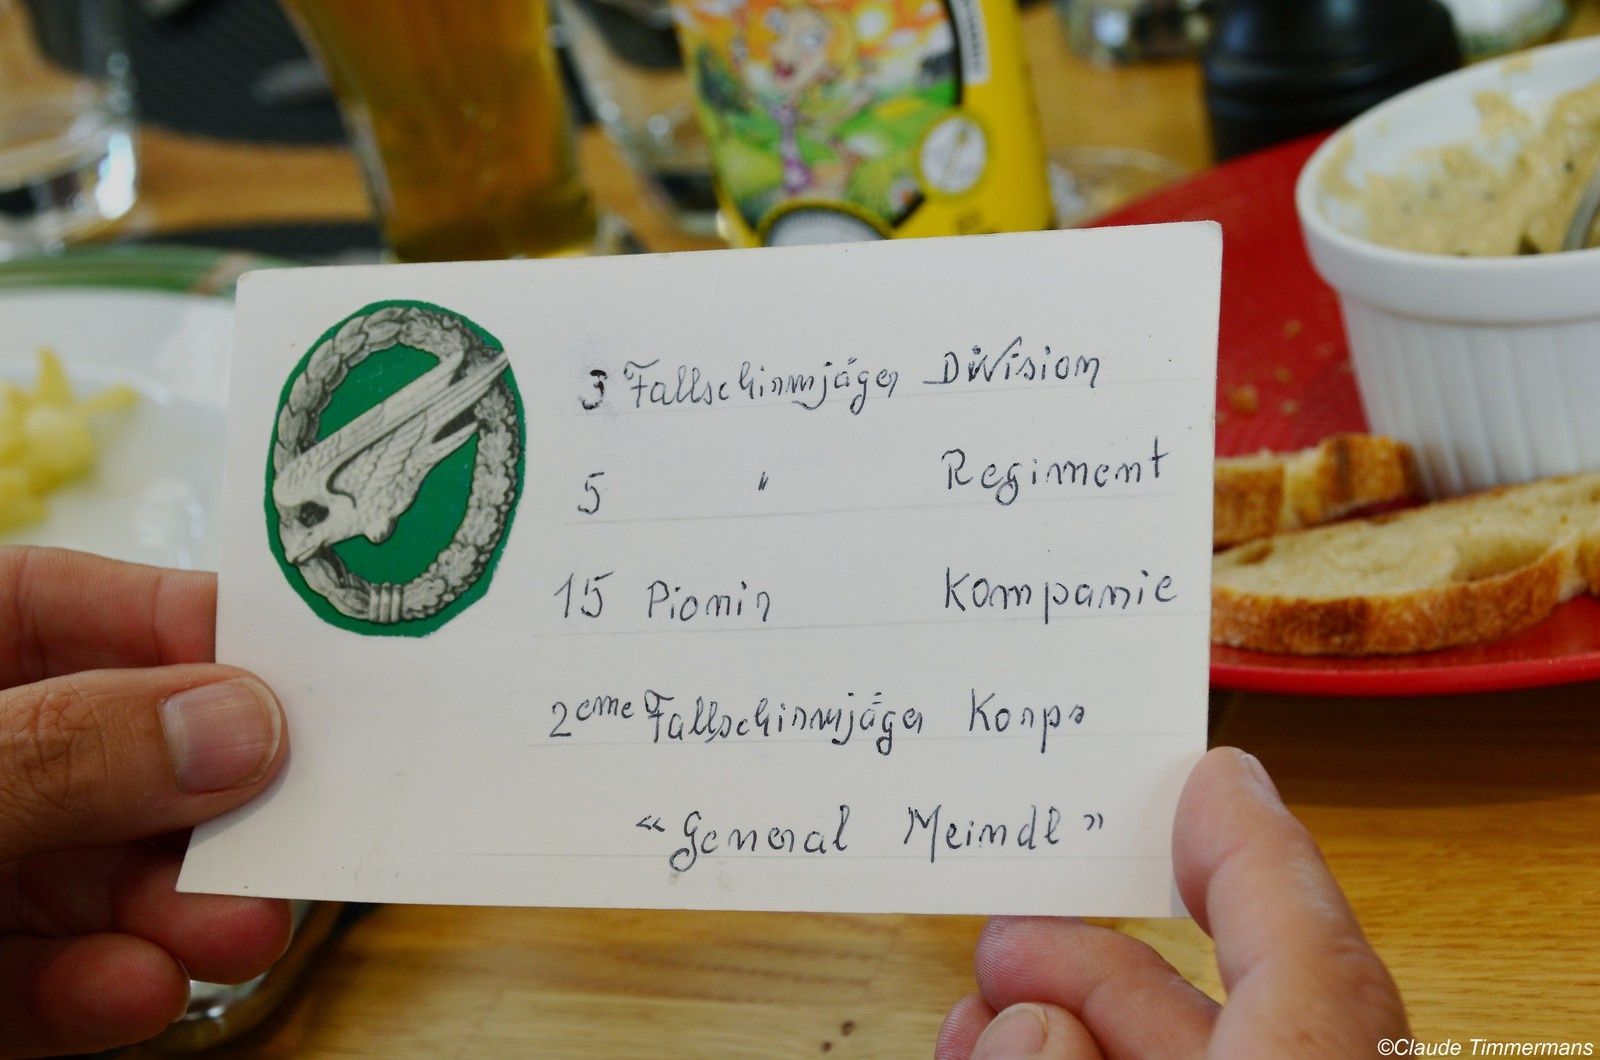 3 Fallschirmjäger Division
5 " Regiment
15 Pionir Kompanie
2eme Fallschirmjäger Korps
« General Meindl »
©Claude Timmermans